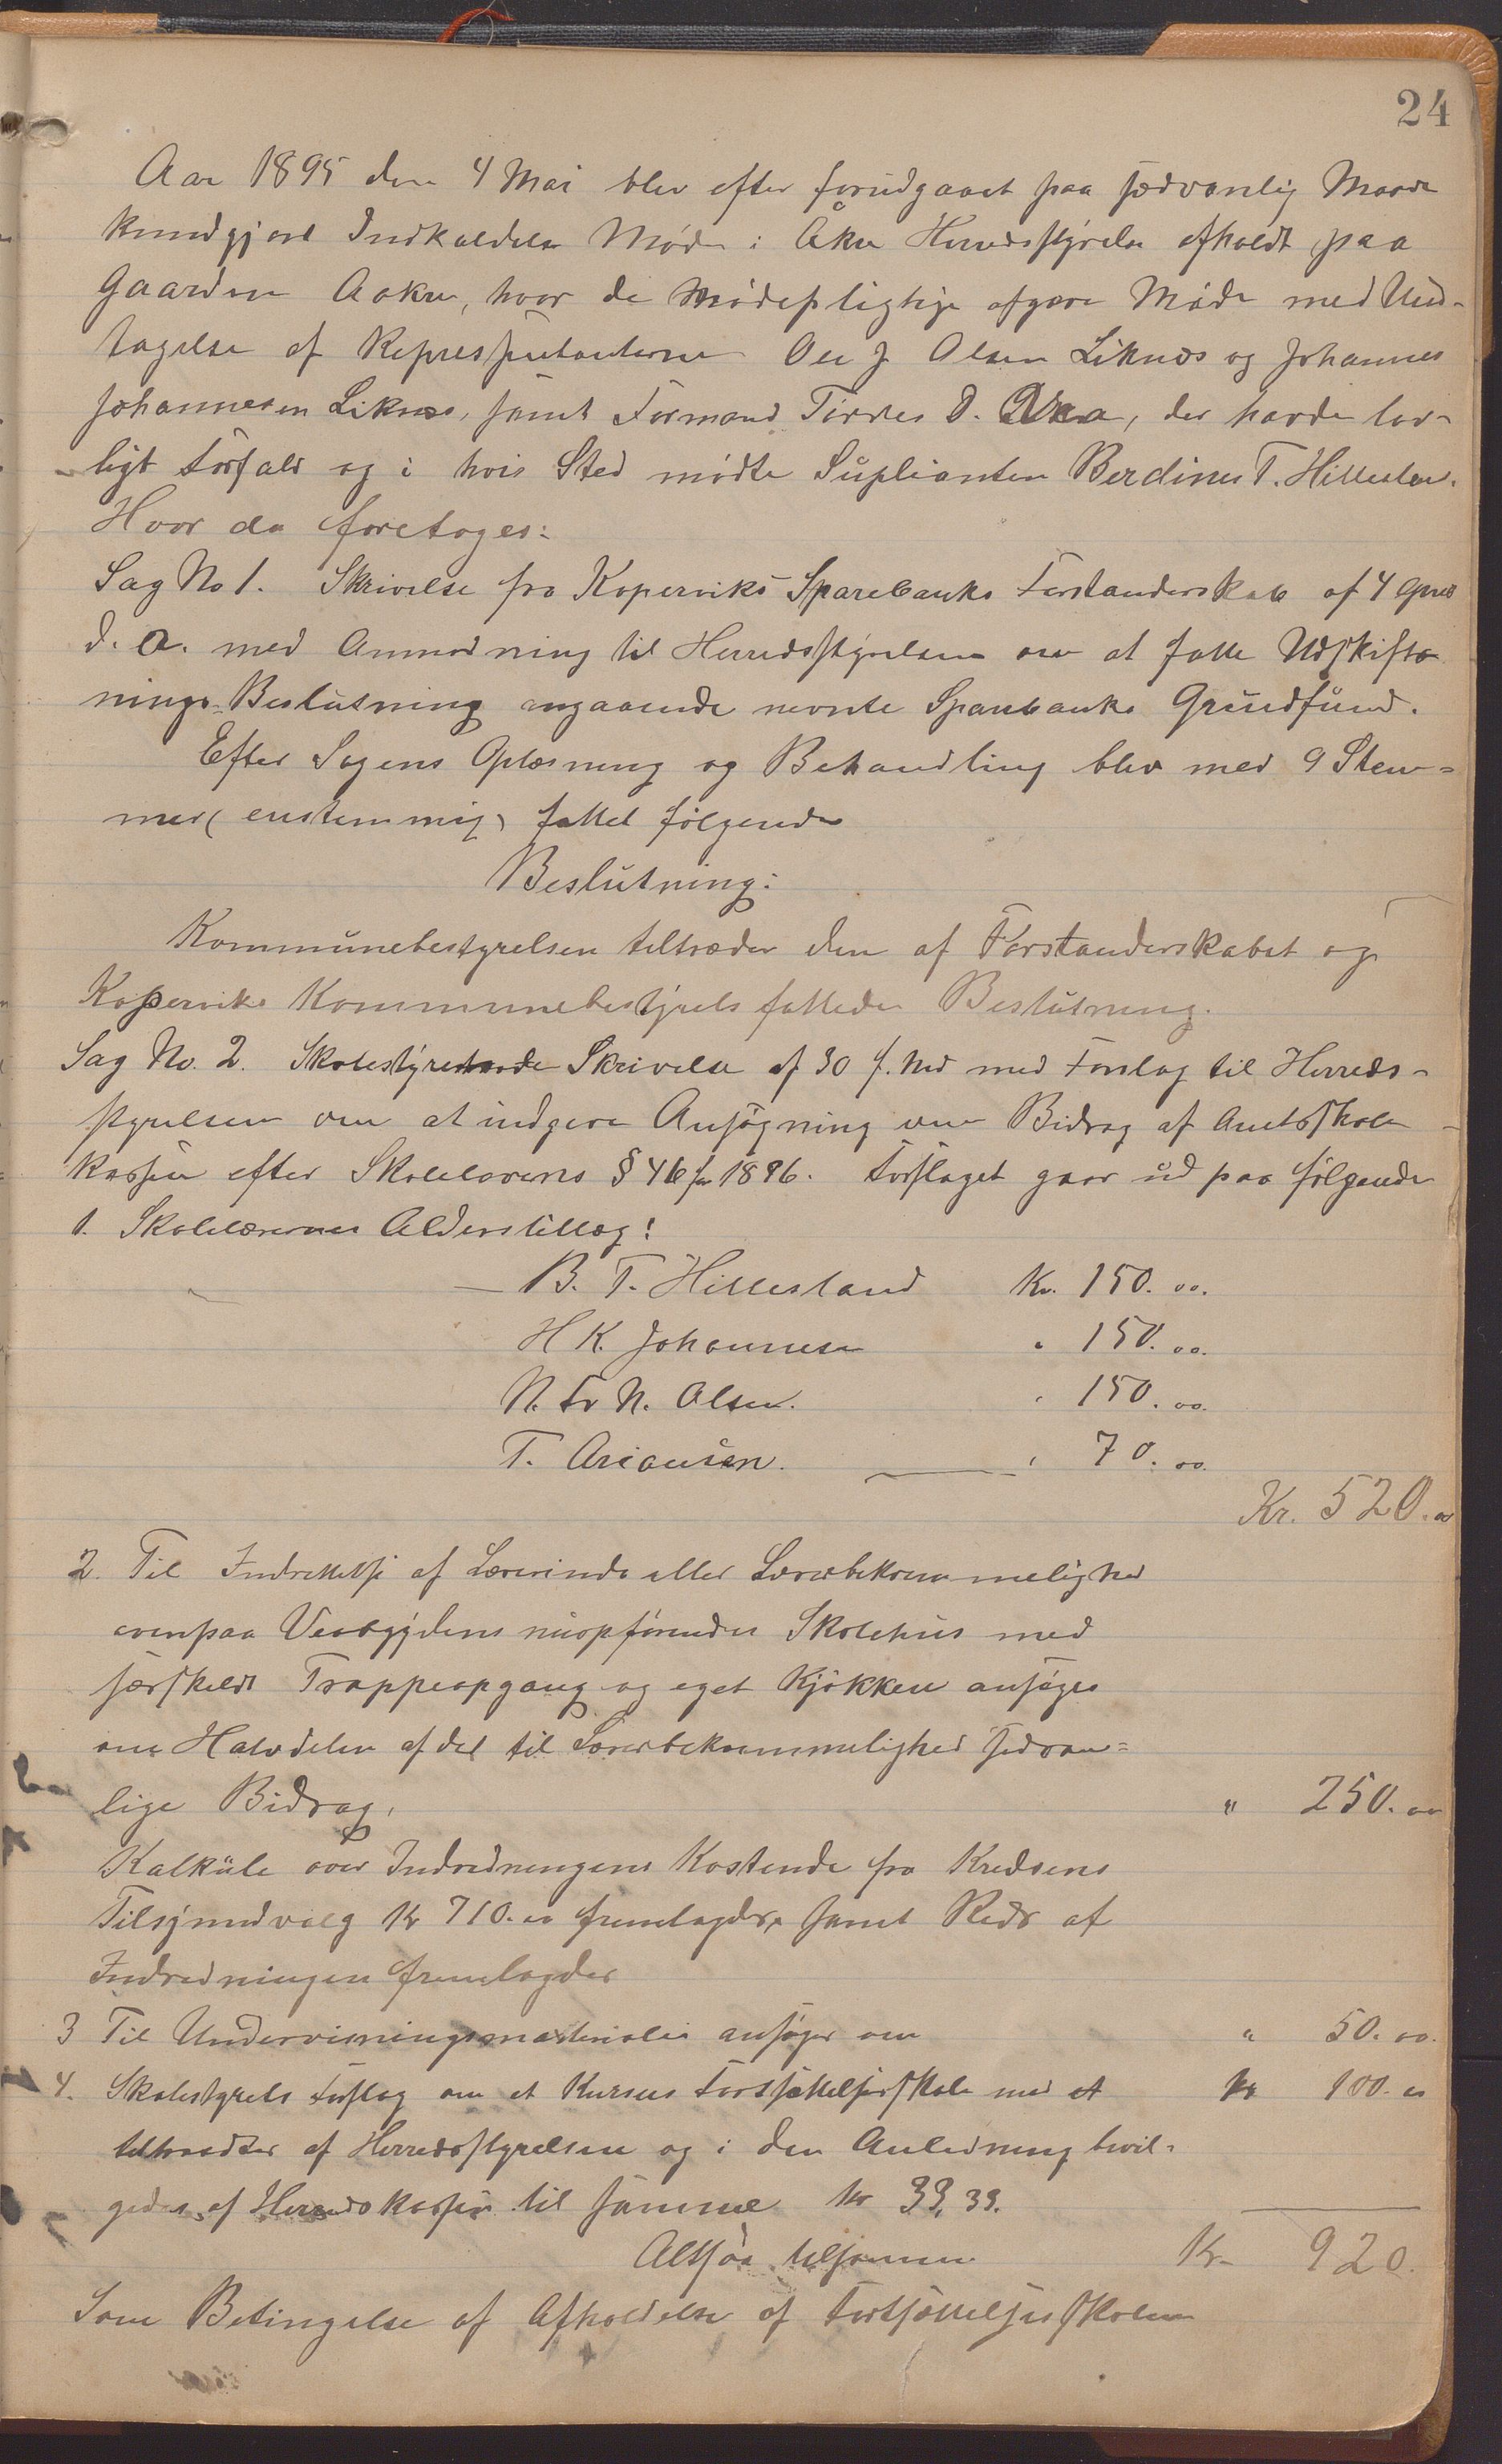 24
Aar 1895 den 4 Mai blev efter forudgaaet paa sædvanlig Maade
kundgjort Indkaldelse Møde i Åkre Herredsstyrelse afholdt paa
Gaarden Aakre, hvor de Mødepligtige afgave Møde med Und-
tagelse af Repræsentanterne Ole J Olsen Liknæs og Johannes
Johannesen Liknæs, samt Formand Tørres D. , der havde lov-
ligt Forfald og i hvis Sted mødte Suplianten Berdines T. Hillesland.
Hvor da foretoges:
Sag No 1. Skrivelse fra Koperviks Sparebanks Forstanderskab af 4 April
d. a. med Anmodning til Herredsstyrelsen om at fatte Udskift-
nings-Beslutning angaaende nevnte Sparebanks Grundfund.
Efter Sagens Oplæsning og Behandling blev med 9 Stem-
mer (enstemmig) fattet følgende
Beslutning:
Kommunebestyrelsen tiltræder den af Forstanderskabet og
Koperviks Kommunebestyrels fattede Beslutning.
Sag No. 2. Skolestyrets Skrivelse af 30 f. Md med Forslag til Herreds-
styrelsen om at indgive Ansøgning om Bidrag af Amtsskole
kassen efter Skolelovens § 46 for 1896. Forslaget gaar ud paa følgende
1. Skolelærernes Alderstillæg:
B. T. Hillesland Kr. 150. 00.
H K. Johannesen " 150. 00.
N. Fr N. Olsen. " 150. 00.
T. Ariansen. " 70. 00.
Kr. 520. 00
2. Til Indrettelse af Lærerinde eller Lærerbekvemmelighed
ovenpaa Veabygdens nuopførende Skolehus med
særskildt Trappeopgang og eget Kjøkken ansøges
om Halvdelen af det til Lærerbekvemmelighed sedvan-
lige Bidrag, " 250. 00
Kalkule over Indredningens Kostende fra Kredsens
Tilsynsudvalg Kr 710. 00 fremlagdes, samt Rids af
Indredningen fremlagdes
3 Til Undervisningsmaterialer ansøges om " 50. 00.
4. Skolestyrets Forslag om et Kursus Fortsættelsesskole med et Kr 100. 00
tiltraadtes af Herredsstyrelsen og i den Anledning bevil-
gedes af Herredskassen til samme Kr 33,33.
Altsaa tilsammen Kr- 920.
Som Betingelse af Afholdelse af Fortsættelsesskolen